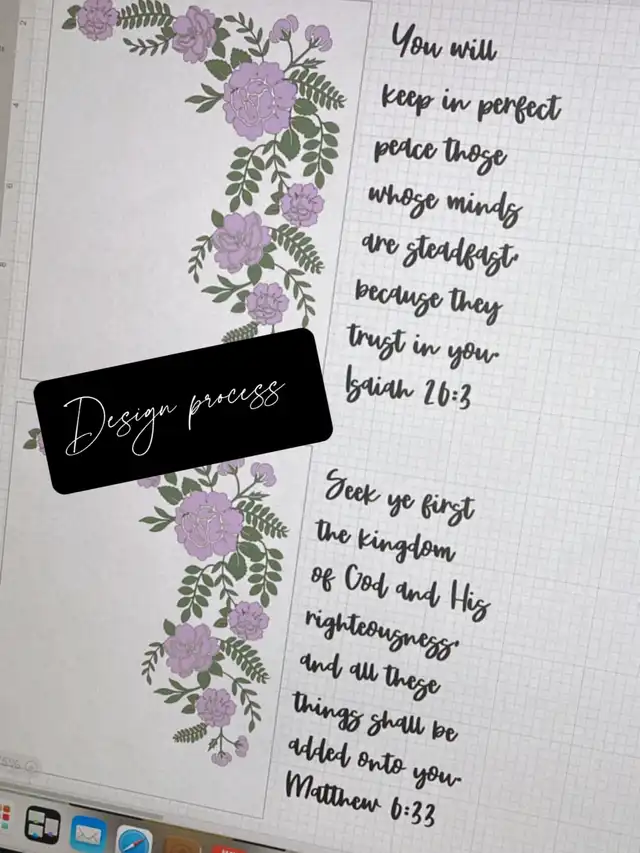 You will
keep in perfect
peace those
whose minds
are steadfast,
because they
trust in you.
Isaiah 26:3
Design process
Seek ye first
the kingdom
of God and His
righteousness,
and all these
things shall be
added onto you.
Matthew 6:33